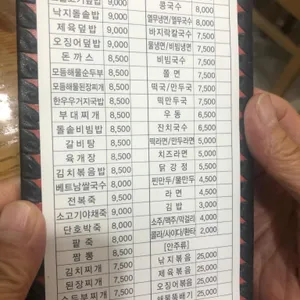 낙지돌솥밥 9,000
제육덮밥 9,000
오징어덮밥 9,000
돈까스 8,500
모듬해물순두부 8,500
모듬해물된장찌개 8,500
한우우거지국밥 8,500
부대찌개 8,500
돌솥비빔밥 8,500
갈비탕 8,500
육개장 8,500
김치볶음밥 8,500
베트남쌀국수 8,000
전복죽 9,500
소고기야채죽 9,000
단호박죽 8,000
팥죽 8,000
짬뽕 8,500
김치찌개 7,500
된장찌개 7,500
콩국수 8,000
열무냉면/열무국수 8,000
바지락칼국수 7,500
물냉면/비빔냉면 7,500
비빔국수 7,500
쫄면 7,500
떡국/만두국 7,500
떡만두국 7,500
우동 6,500
잔치국수 6,500
떡라면/만두라면 5,500
치즈라면 5,000
닭강정 5,500
찐만두/물만두 4,500
라면 4,500
김밥 3,000
소주/맥주/막걸리 4,000
콜라/사이다/환타 2,000
[안주류]
낙지볶음 25,000
제육볶음 25,000
오징어볶음 25,000